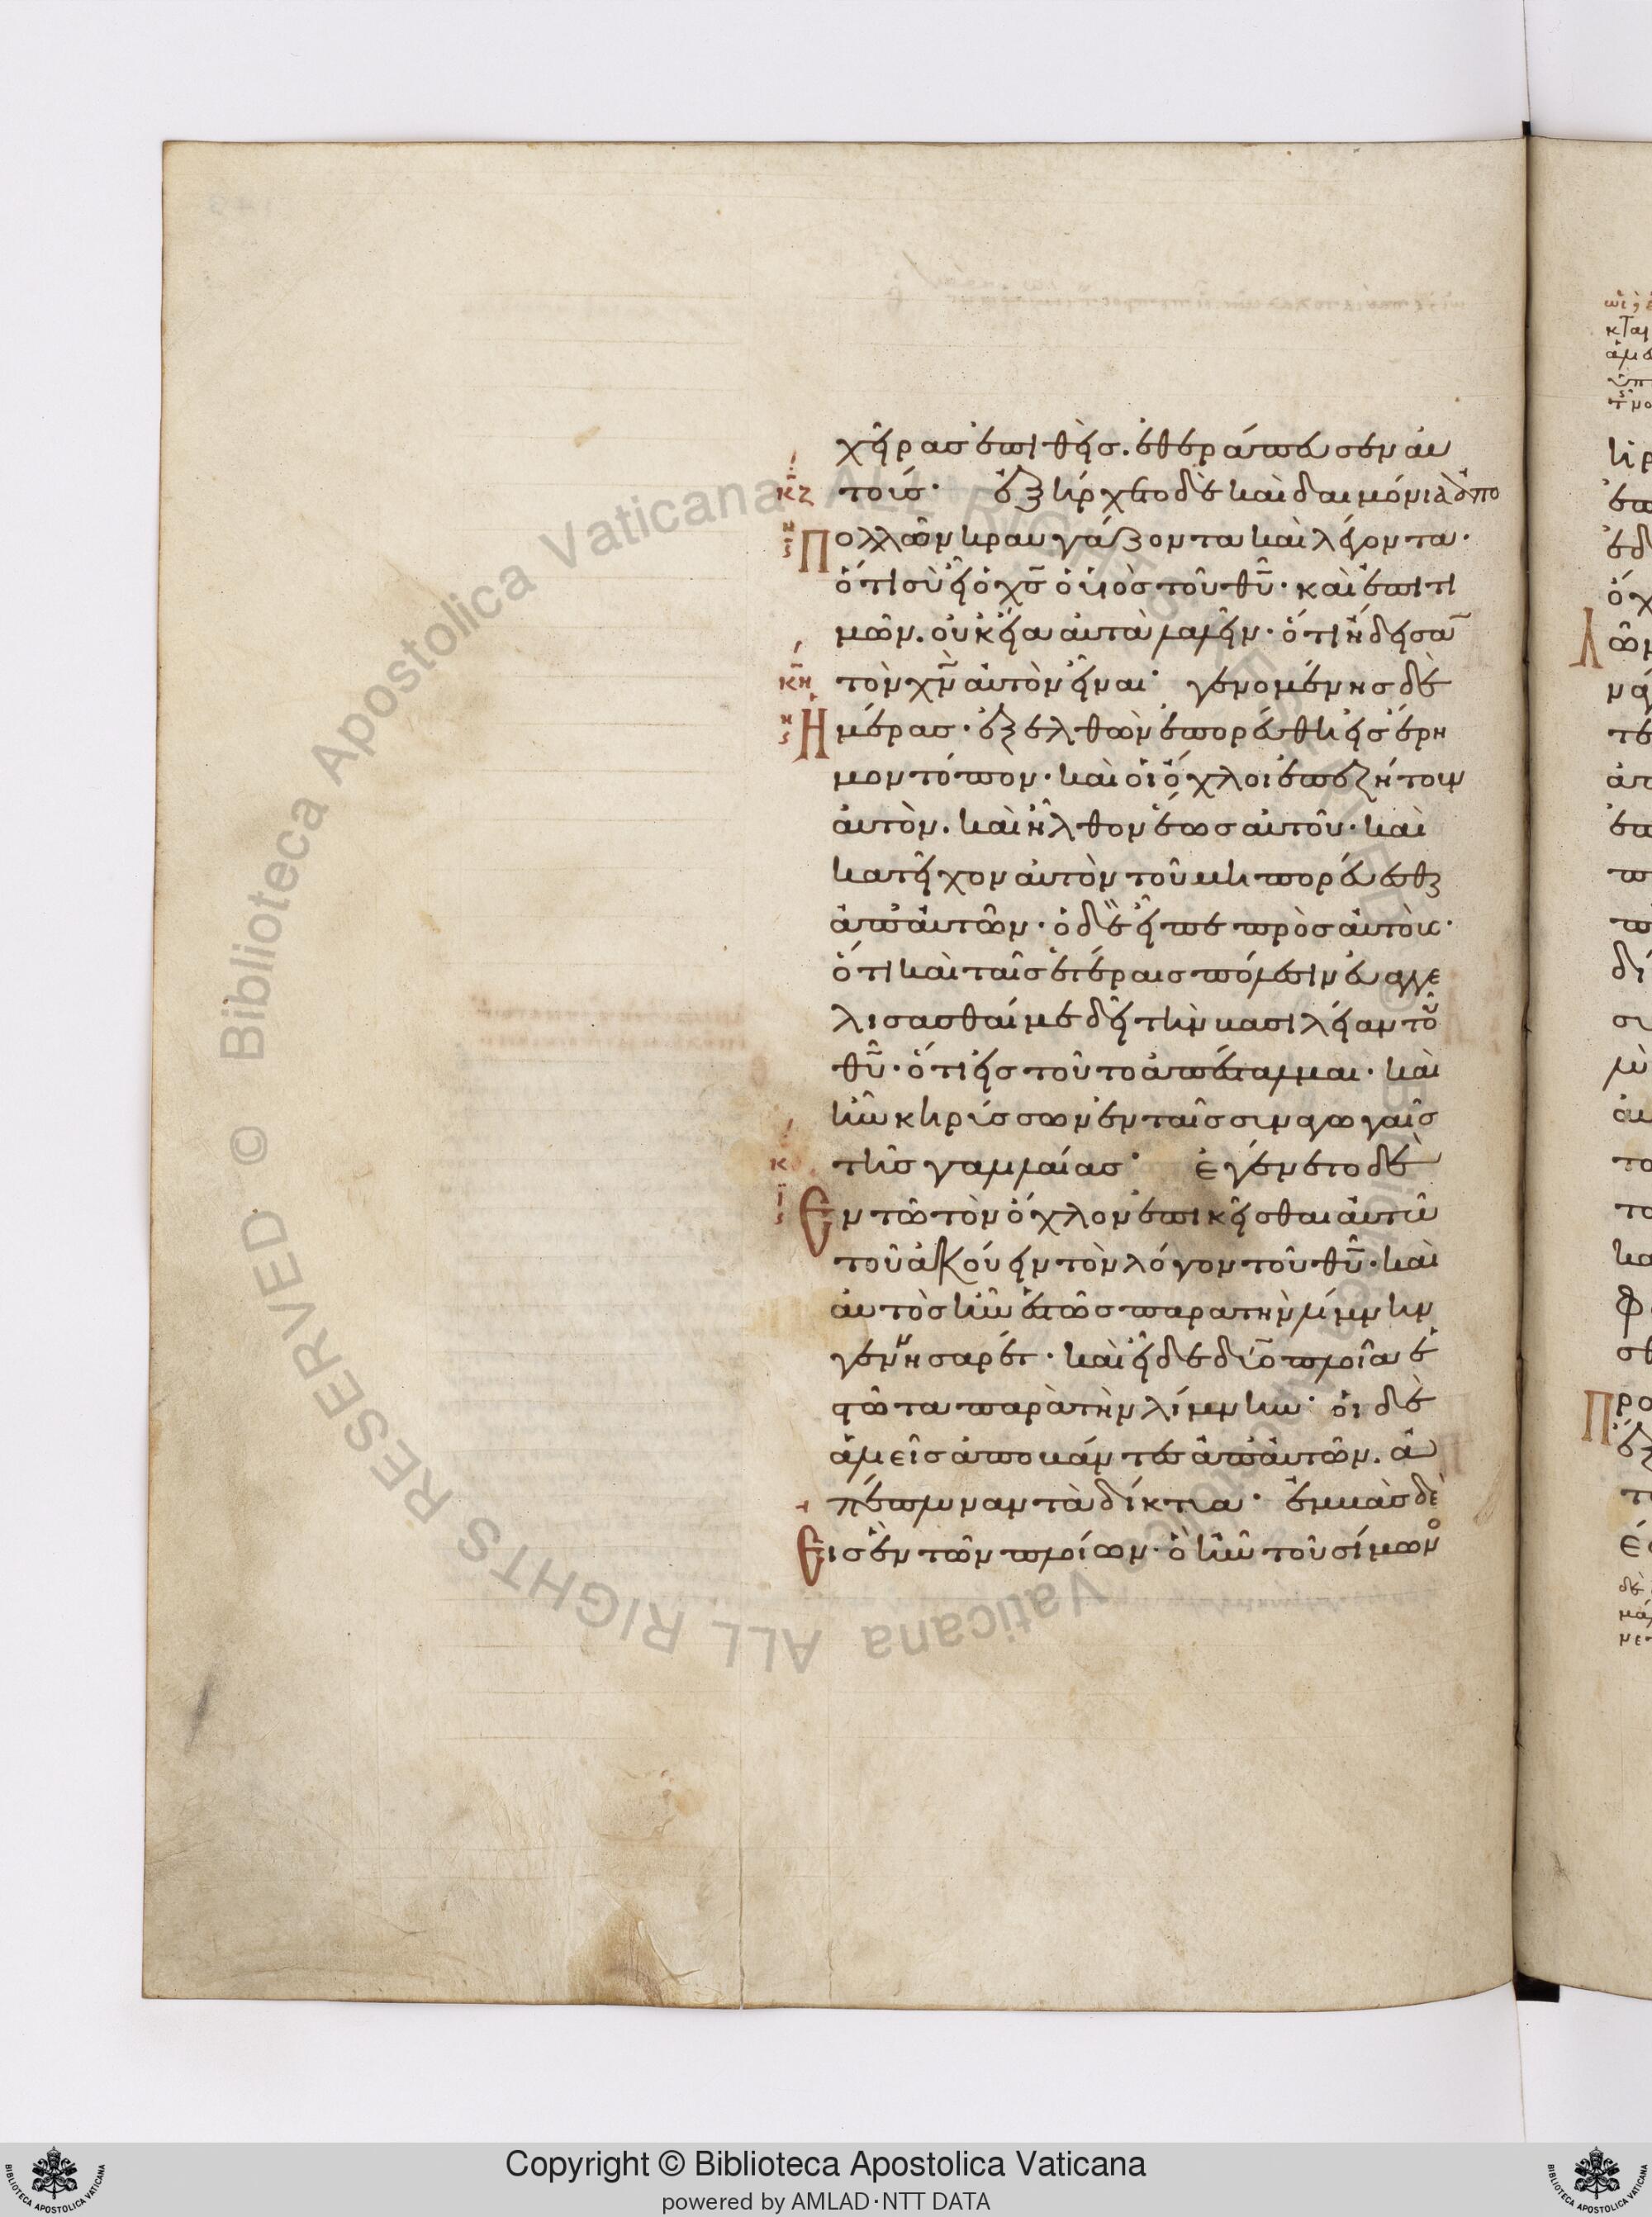 χεῖρας ἐπιθεὶς. ἐθεράπευσεν αὐ
κζ τοὺς· ἐξήρχετο δὲ καὶ δαιμόνια ἀπὸ
πολλῶν κραυγάζοντα καὶ λέγοντα·
ὅτι σὺ εἶ ὁ χς ὁ υἱὸς τοῦ θυ· καὶ ἐπιτι
μῶν. οὐκ εἴα αὐτὰ λαλεῖν· ὅτι ᾔδεισα
κη τὸν χν αὐτὸν εἶναι· γενομένης δὲ
Ἡμέρας· ἐξελθὼν ἐπορεύθη εἰς ἔρη
μον τόπον· καὶ οἱ ὄχλοι ἐπεζήτουν
αὐτὸν. καὶ ἦλθον ἕως αὐτοῦ· καὶ
κατεῖχον αὐτὸν τοῦ μὴ πορεύεσθαι
ἀπ' αὐτῶν· ὁ δὲ εἶπε πρὸς αὐτοὺς·
ὅτι καὶ ταῖς ἑτέραις πόλεσιν εὐαγγε
λίσασθαί με δεῖ τὴν βασιλείαν τοῦ
θυ· ὅτι εἰς τοῦτο ἀπέσταλμαι· καὶ
ἦν κηρύσσων ἐν ταῖς συναγωγαῖς
τῆς γαλιλαίας· ἐγένετο δὲ
Ἐν τῶ τὸν ὄχλον ἐπικεῖσθαι αὐτῶ
τοῦ ἀκούειν τὸν λόγον τοῦ θυ· καὶ
αὐτὸς ἦν ἑστὼς παρα τὴν λίμνην
γεννησαρέτ· καὶ εἶδε δύο πλοῖα ἑ
στῶτα παρὰ τὴν λίμνην· οἱ δὲ
ἁλιεῖς ἀποβάντες ἀπ' αὐτῶν. ἀ
πέπλυναν τὰ δίκτυα· ἐμβὰς δὲ
Εἰς ἓν τῶν πλοίων· ὃ ἦν τοῦ σίμωνο
Copyright © Biblioteca Apostolica Vaticana
powered by AMLAD·NTT DATA
© Biblioteca Apostolica Vaticana ALL RIGHTS RESERVED